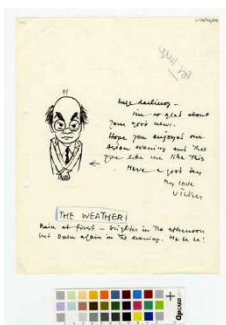 my darling -
im so glad about
your good news.
Hope you enjoyed our
Asian evening and that
you like me like this
Have a good day
My love
THE WEATHER!
Rain at first - brighter in the afternoon
but rain again in the evening. Ha ha ha!